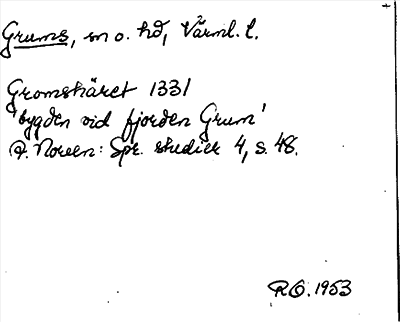 Grums, sn o. hd, Värml. l.
Gromshäret 1331
'bygden vid fjorden Grum'
A. Noreen: Spr. studier 4, s. 48.
R.O. 1953